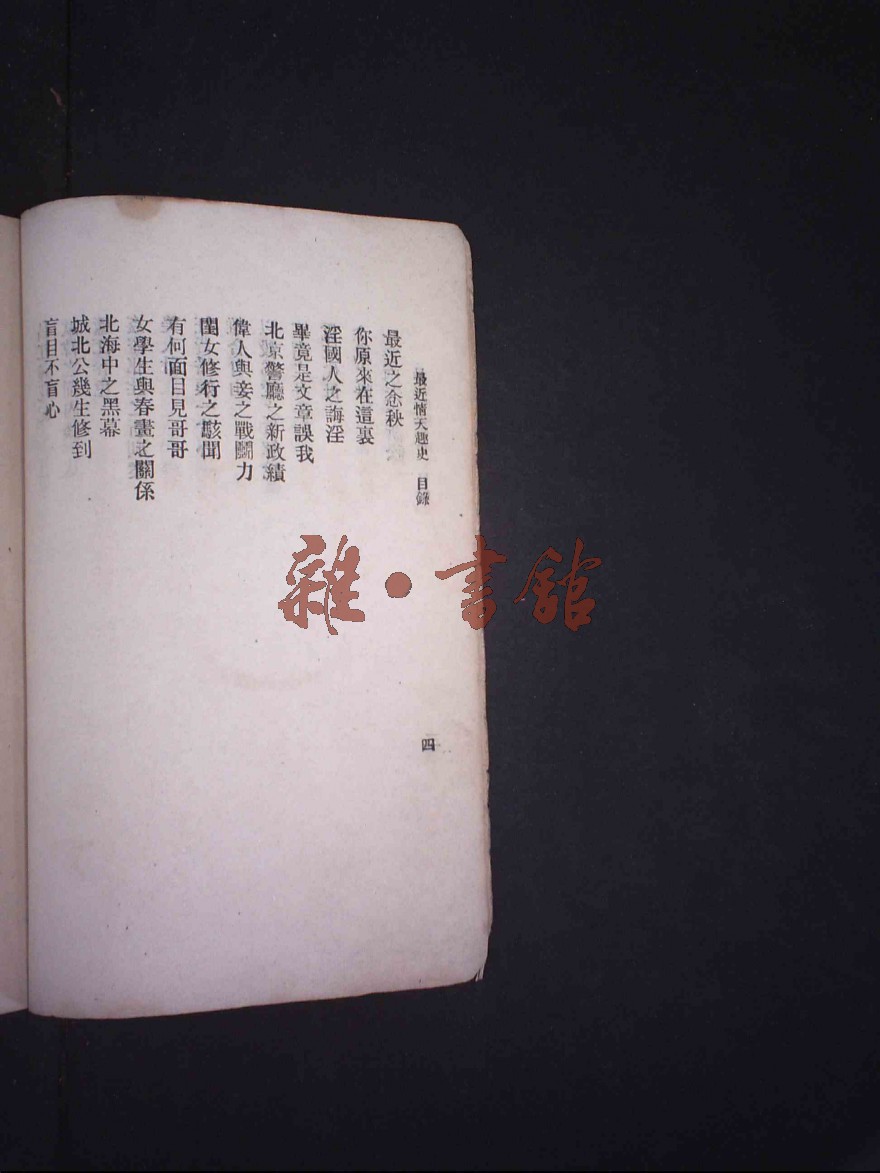 最近情天趣史 目錄
最近之忿秧
你原來在這裏
淫國人之誨淫
畢竟是文章誤我
北京警廳之新政績
偉人與妾之戰鬭力
閨女修行之駭聞
有何面目見哥哥
女學生與春畫之關係
北海中之黑幕
城北公幾生修到
盲目不盲心
四
雜·書館